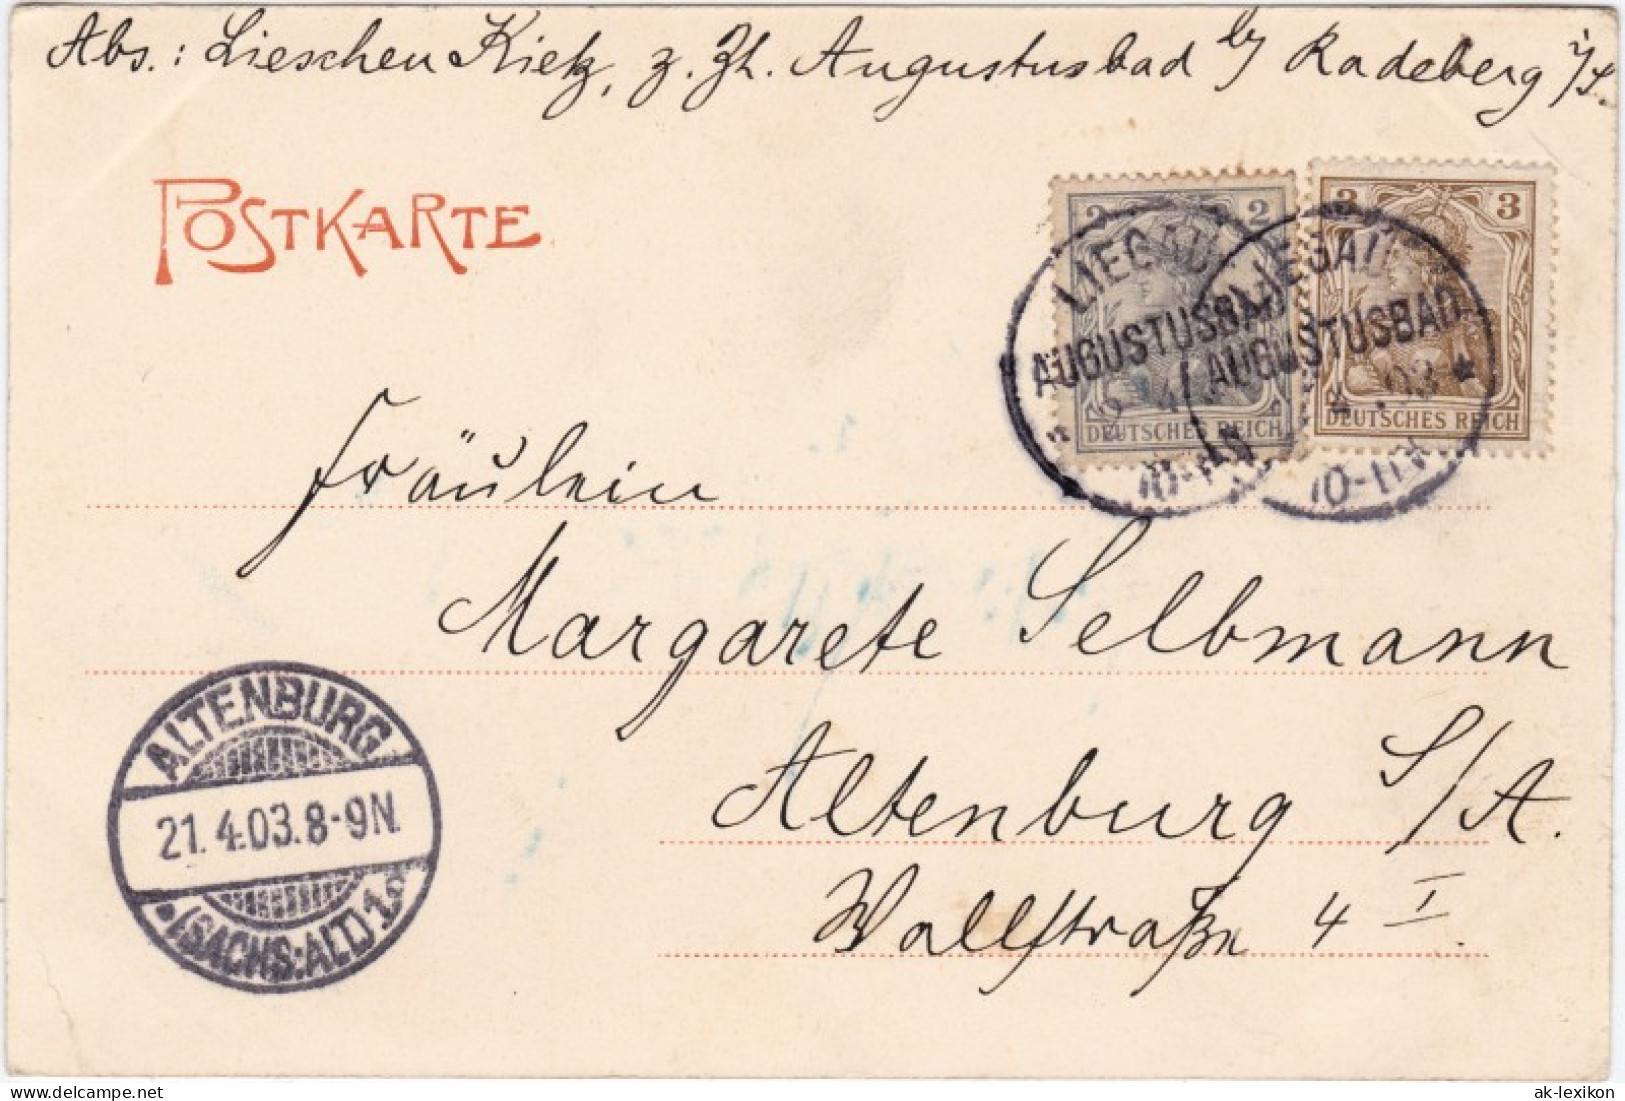 Abs.: Lieschen Kietz, z. Zt. Augustusbad b/ Radeberg i/S.
POSTKARTE
2 2
3 3
LIEGAU
AUGUSTUSBAD
10-11N
DEUTSCHES REICH
LIEGAU
AUGUSTUSBAD
4.03
10-11N
DEUTSCHES REICH
Fräulein
Margarete Selbmann
Altenburg S/A.
Wallstraße 4 I.
ALTENBURG
21.4.03.8-9N.
(SACHS:ALT.) 1
delcampe.net
ak-lexikon